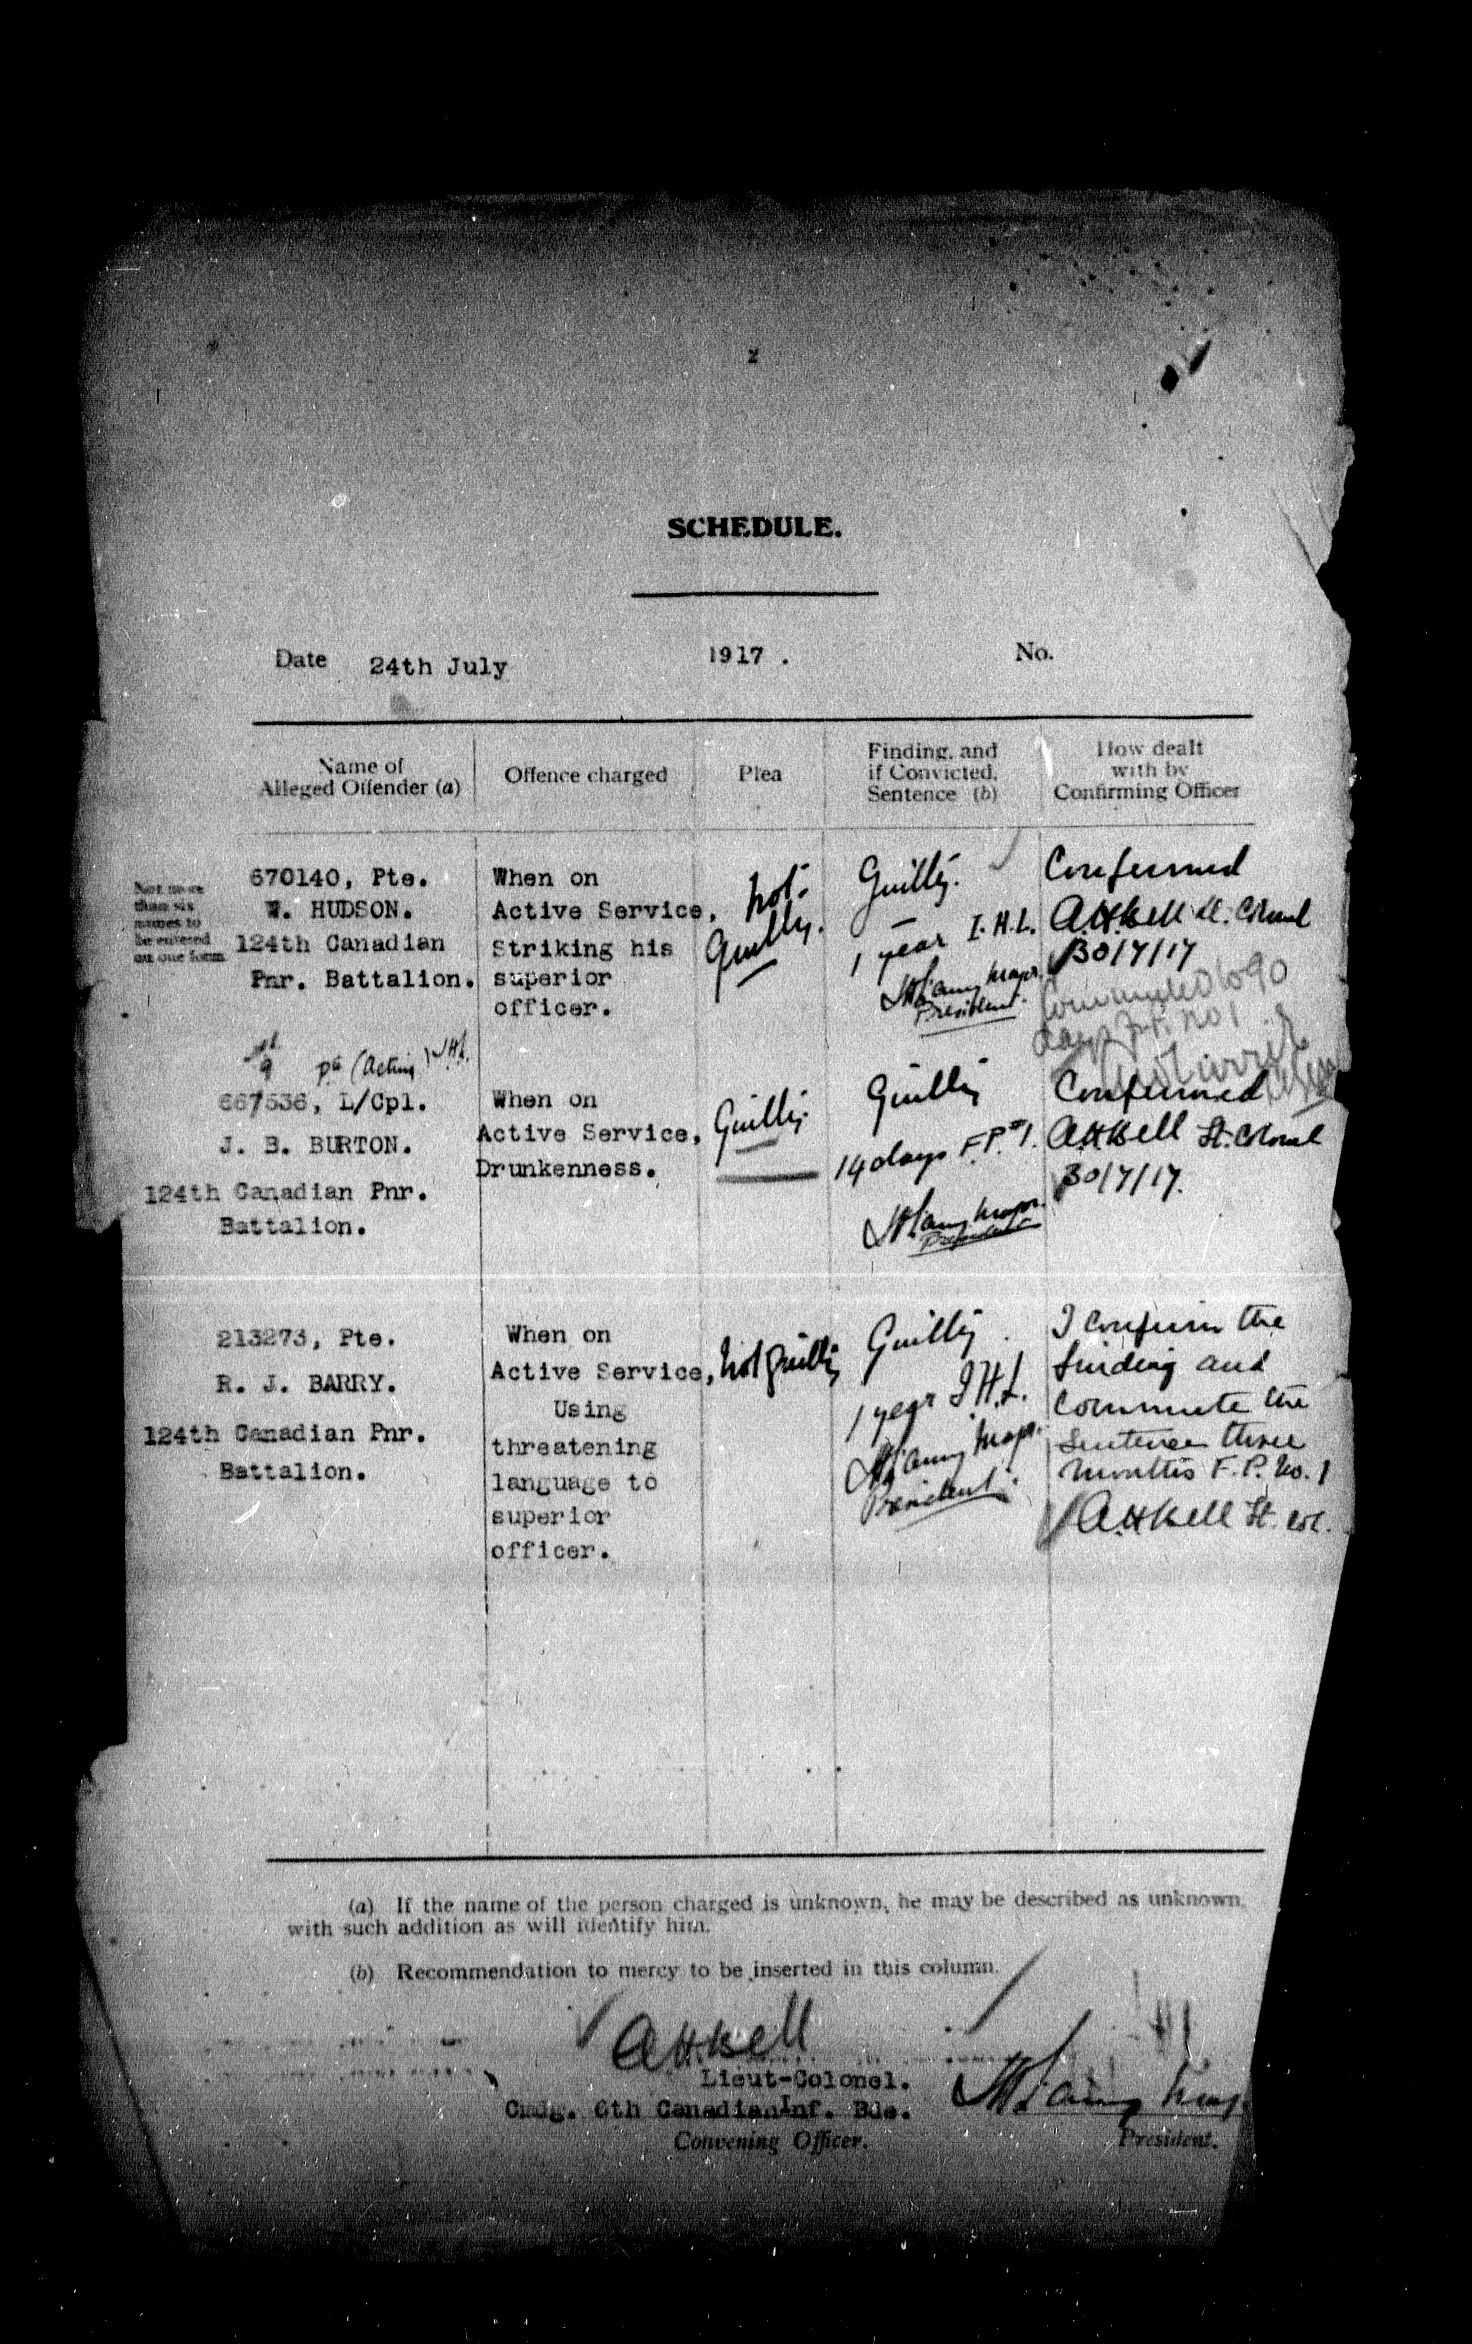 SCHEDULE.
Date 24th July 1917 . No.
Name of
Alleged Offender (a)
Offence charged
Plea
Finding, and
if Convicted,
Sentence (b)
How dealt
with by
Confirming Officer
Not more
than six
names to
be entered
on one form.
670140, Pte.
W. HUDSON.
124th Canadian
Pnr. Battalion.
When on
Active Service,
Striking his
superior
officer.
Not
Guilty.
Guilty.
1 year I.H.L.
Major
President
Confirmed
A.H. Bell Lt. Colonel
30/7/17
Commuted to 90
days F.P. No 1
Pte (Acting)
667536, L/Cpl.
J. B. BURTON.
124th Canadian Pnr.
Battalion.
When on
Active Service,
Drunkenness.
Guilty
Guilty
14 days F.P. #1.
Major
President
Confirmed
A.H. Bell Lt. Colonel
30/7/17.
213273, Pte.
R. J. BARRY.
124th Canadian Pnr.
Battalion.
When on
Active Service,
Using
threatening
language to
superior
officer.
Not guilty
Guilty
1 year I.H.L.
Major
President
I confirm the
finding and
commute the
sentence three
months F.P. No. 1
A.H. Bell Lt. Col.
(a) If the name of the person charged is unknown, he may be described as unknown,
with such addition as will identify him.
(b) Recommendation to mercy to be inserted in this column.
A.H. Bell
Lieut-Colonel.
Cmdg. 6th Canadian Inf. Bde.
Convening Officer.
President.